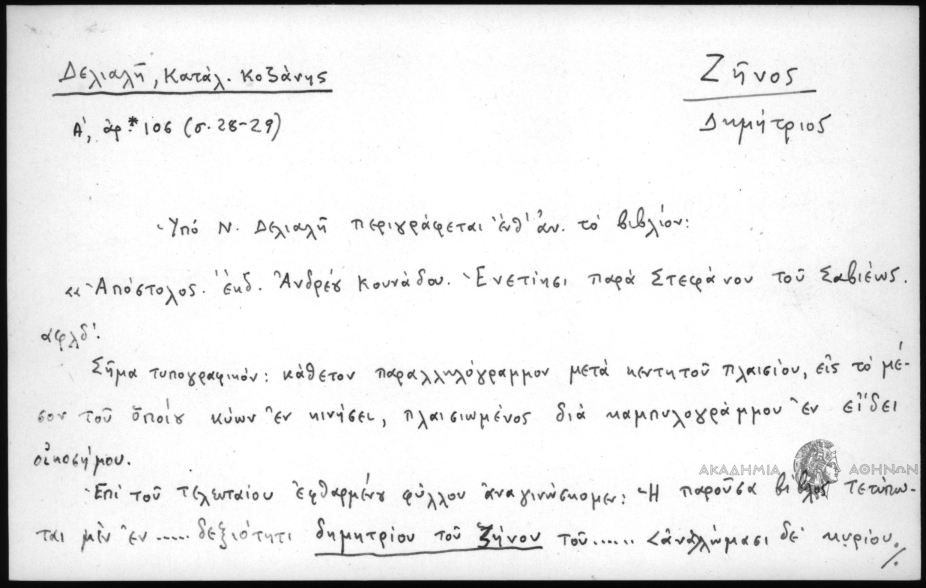 Δελιαλῆ, Κατάλ. Κοζάνης
Ζῆνος
Α', ἀρ.* 106 (σ. 28-29)
Δημήτριος
Ὑπό Ν. Δελιαλῆ περιγράφεται ἐνθ' ἀν. τό βιβλίον:
«Ἀπόστολος. ἐκδ. Ἀνδρέου Κουνάδου. Ἐνετίησι παρά Στεφάνου τοῦ Σαβιέως.
αφλδ'.
Σῆμα τυπογραφικόν: κάθετον παραλληλόγραμμον μετά κεντητοῦ πλαισίου, εἰς τό μέ-
σον τοῦ ὁποίου κύων ἐν κινήσει, πλαισιωμένος διά καμπυλογράμμου ἐν εἴδει
οἰκοσήμου.
Ἐπί τοῦ τελευταίου ἐφθαρμένου φύλλου ἀναγινώσκομεν: Ἡ παροῦσα βίβλος τετύπω-
ται μὲν ἐν ..... δεξιότητι δημητρίου τοῦ ζήνου τοῦ ..... ἀναλώμασι δέ κυρίου.
./.
ΑΚΑΔΗΜΙΑ ΑΘΗΝΩΝ